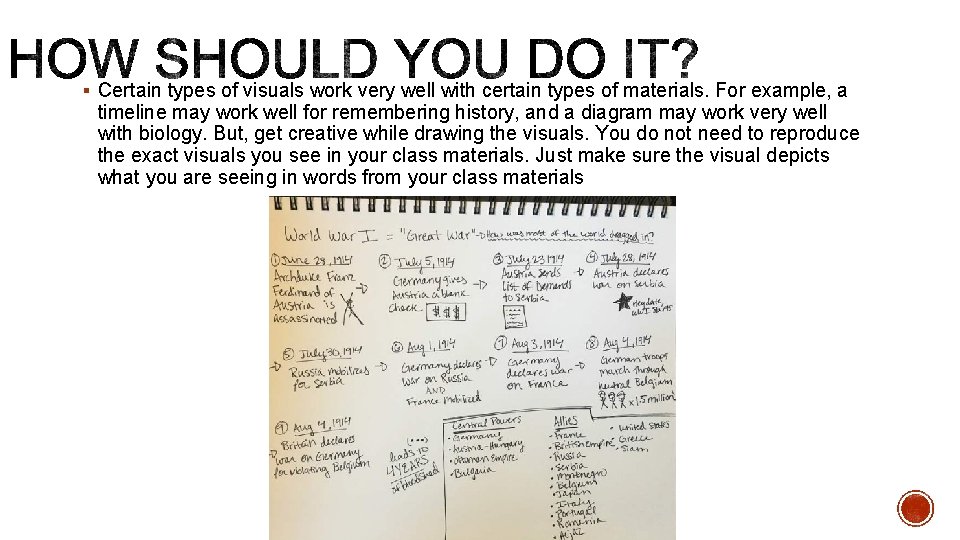 HOW SHOULD YOU DO IT?
▪ Certain types of visuals work very well with certain types of materials. For example, a
timeline may work well for remembering history, and a diagram may work very well
with biology. But, get creative while drawing the visuals. You do not need to reproduce
the exact visuals you see in your class materials. Just make sure the visual depicts
what you are seeing in words from your class materials
World War I = "Great War" → How was most of the world dragged in?
① June 28, 1914
Archduke Franz
Ferdinand of
Austria is
Assassinated
② July 5, 1914
Germany gives
Austria a blank
check
$$$
③ July 23 1914
Austria sends
List of Demands
to Serbia
④ July 28, 1914
Austria declares
war on Serbia
Key date,
WWI starts
⑤ July 30, 1914
Russia mobilizes
for Serbia
⑥ Aug 1, 1914
Germany declares
war on Russia
AND
France mobilized
⑦ Aug 3, 1914
Germany
declares war
on France
⑧ Aug 4, 1914
German troops
march through
neutral Belgium
x 1.5 million
⑨ Aug 4, 1914
Britain declares
war on Germany
for violating Belgium
(...)
leads to
4 YEARS
of bloodshed
Central Powers
• Germany
• Austria-Hungary
• Ottoman Empire
• Bulgaria
Allies
• France
• British Empire
• Russia
• Serbia
• Montenegro
• Belgium
• Japan
• Italy
• Portugal
• Romania
• Hijaz
• United States
• Greece
• Siam